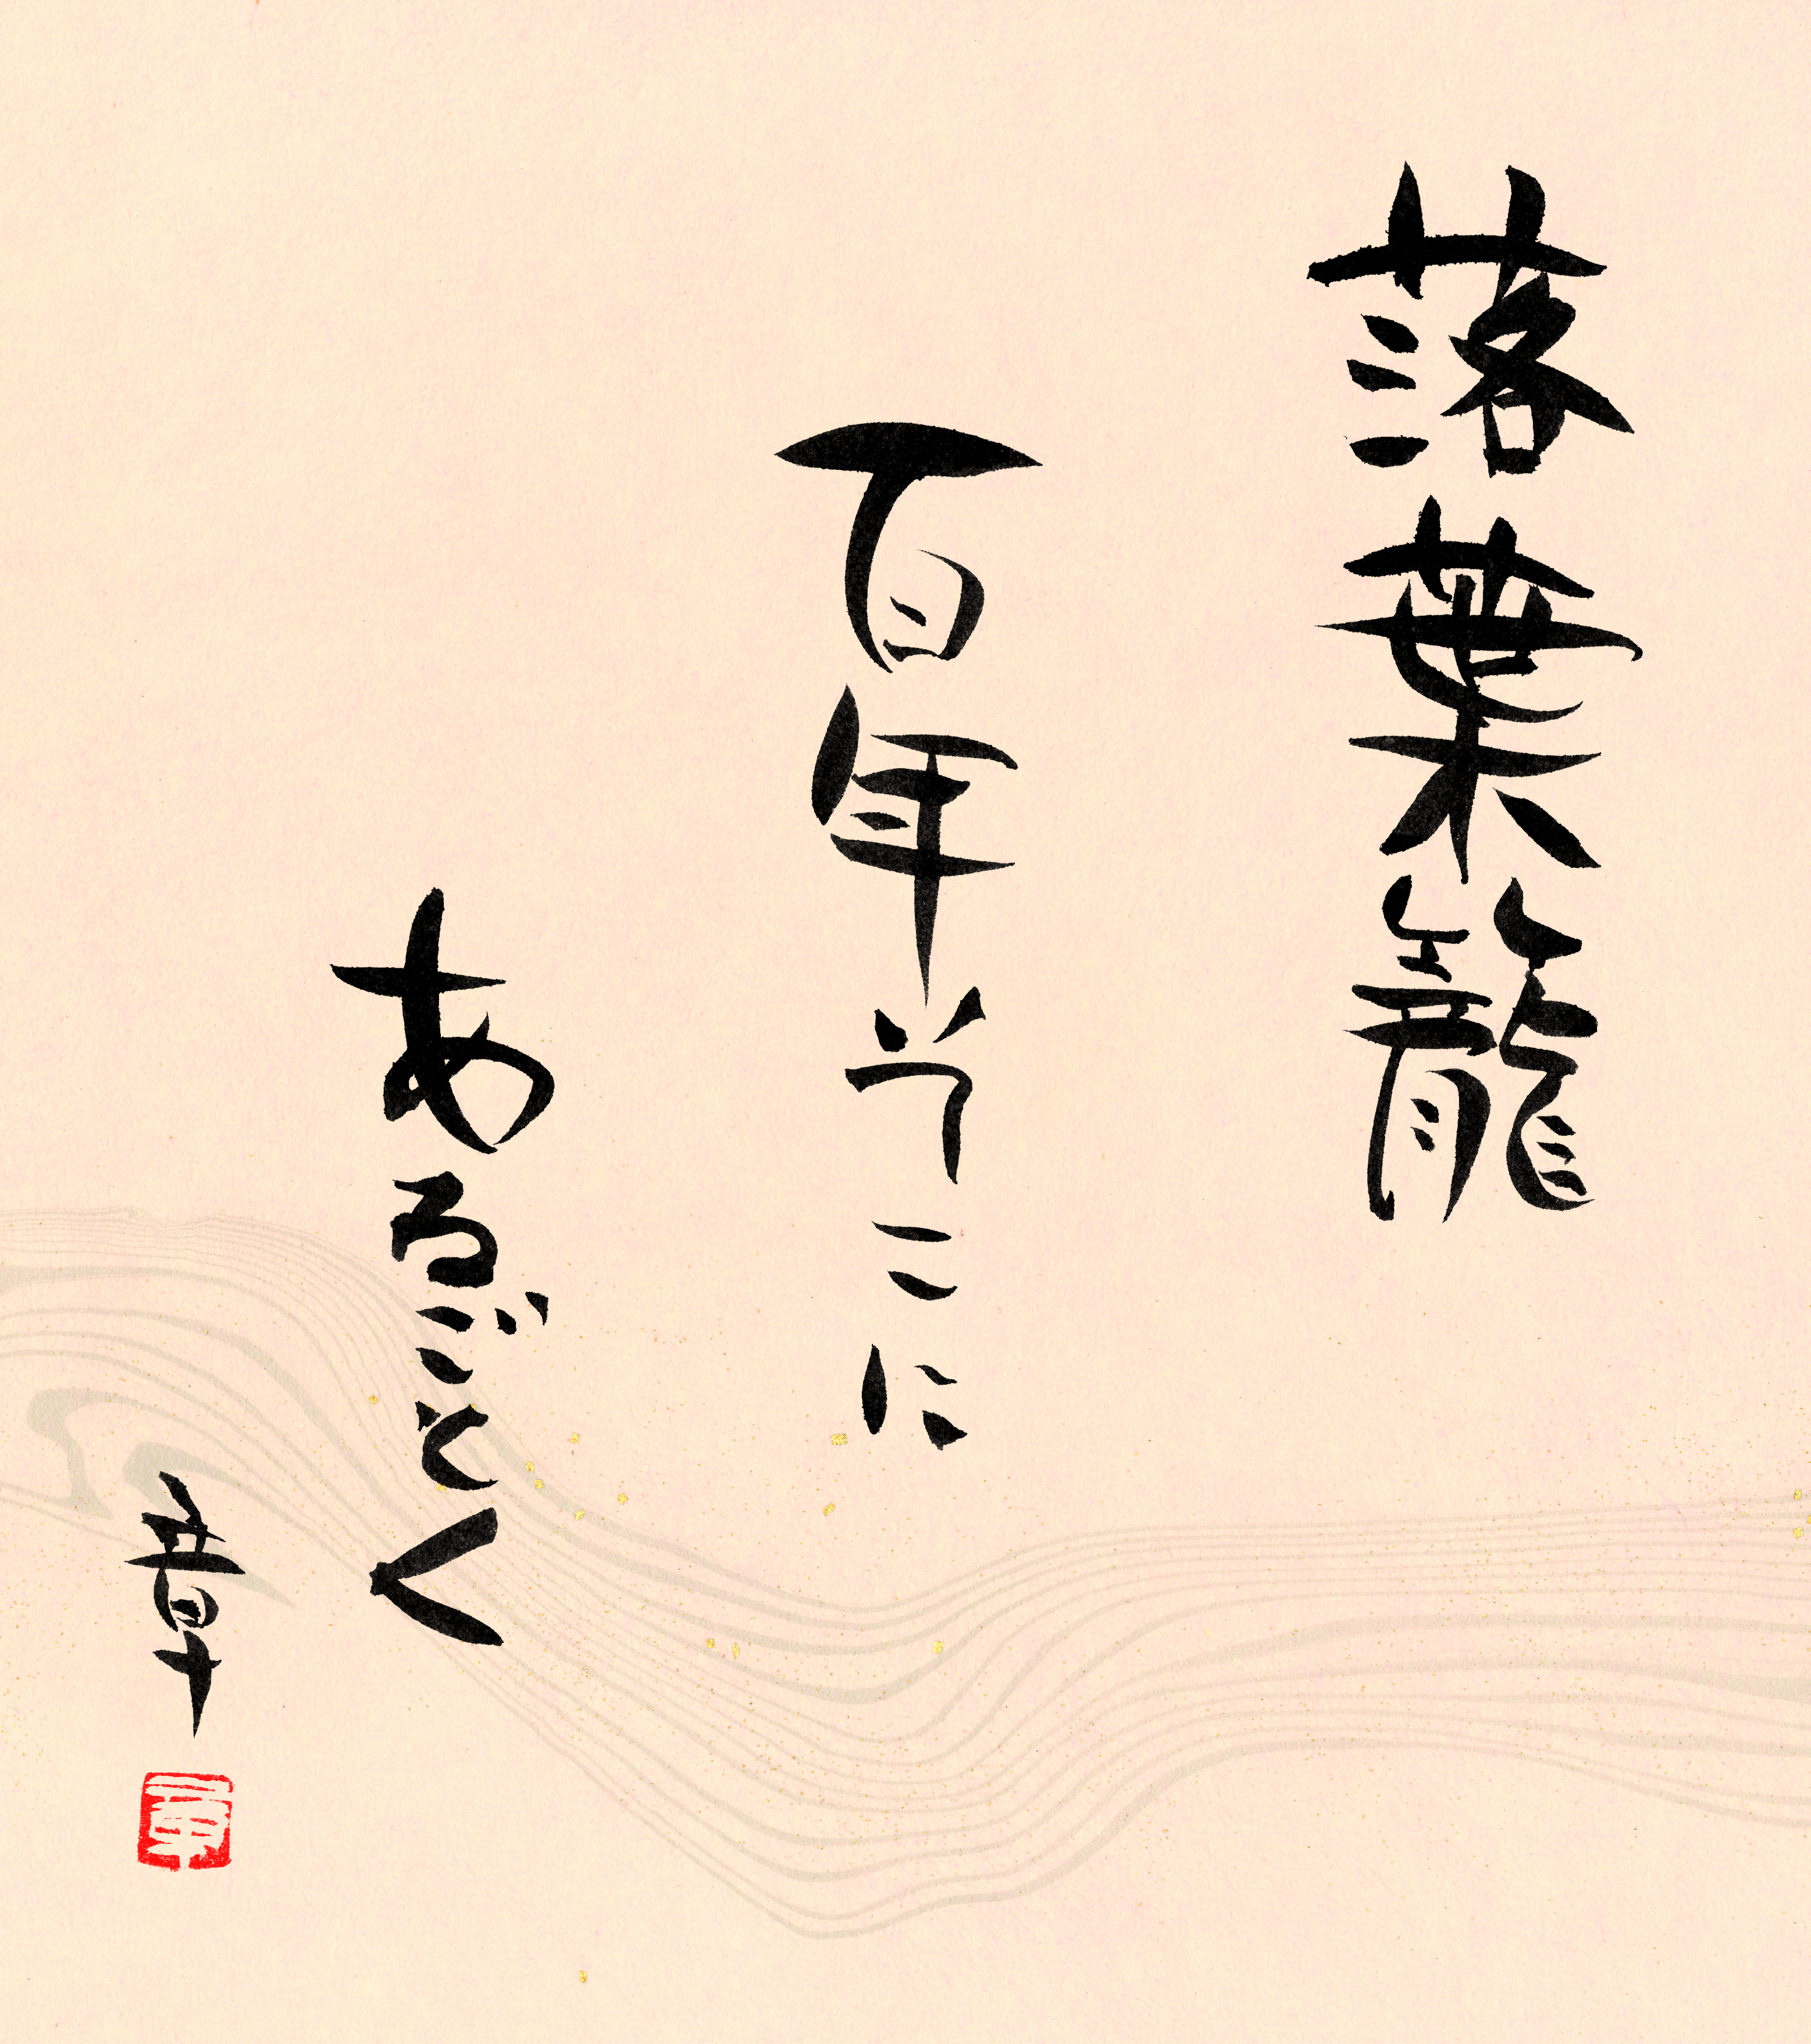 落葉籠
百年そこに
あるごとく
章